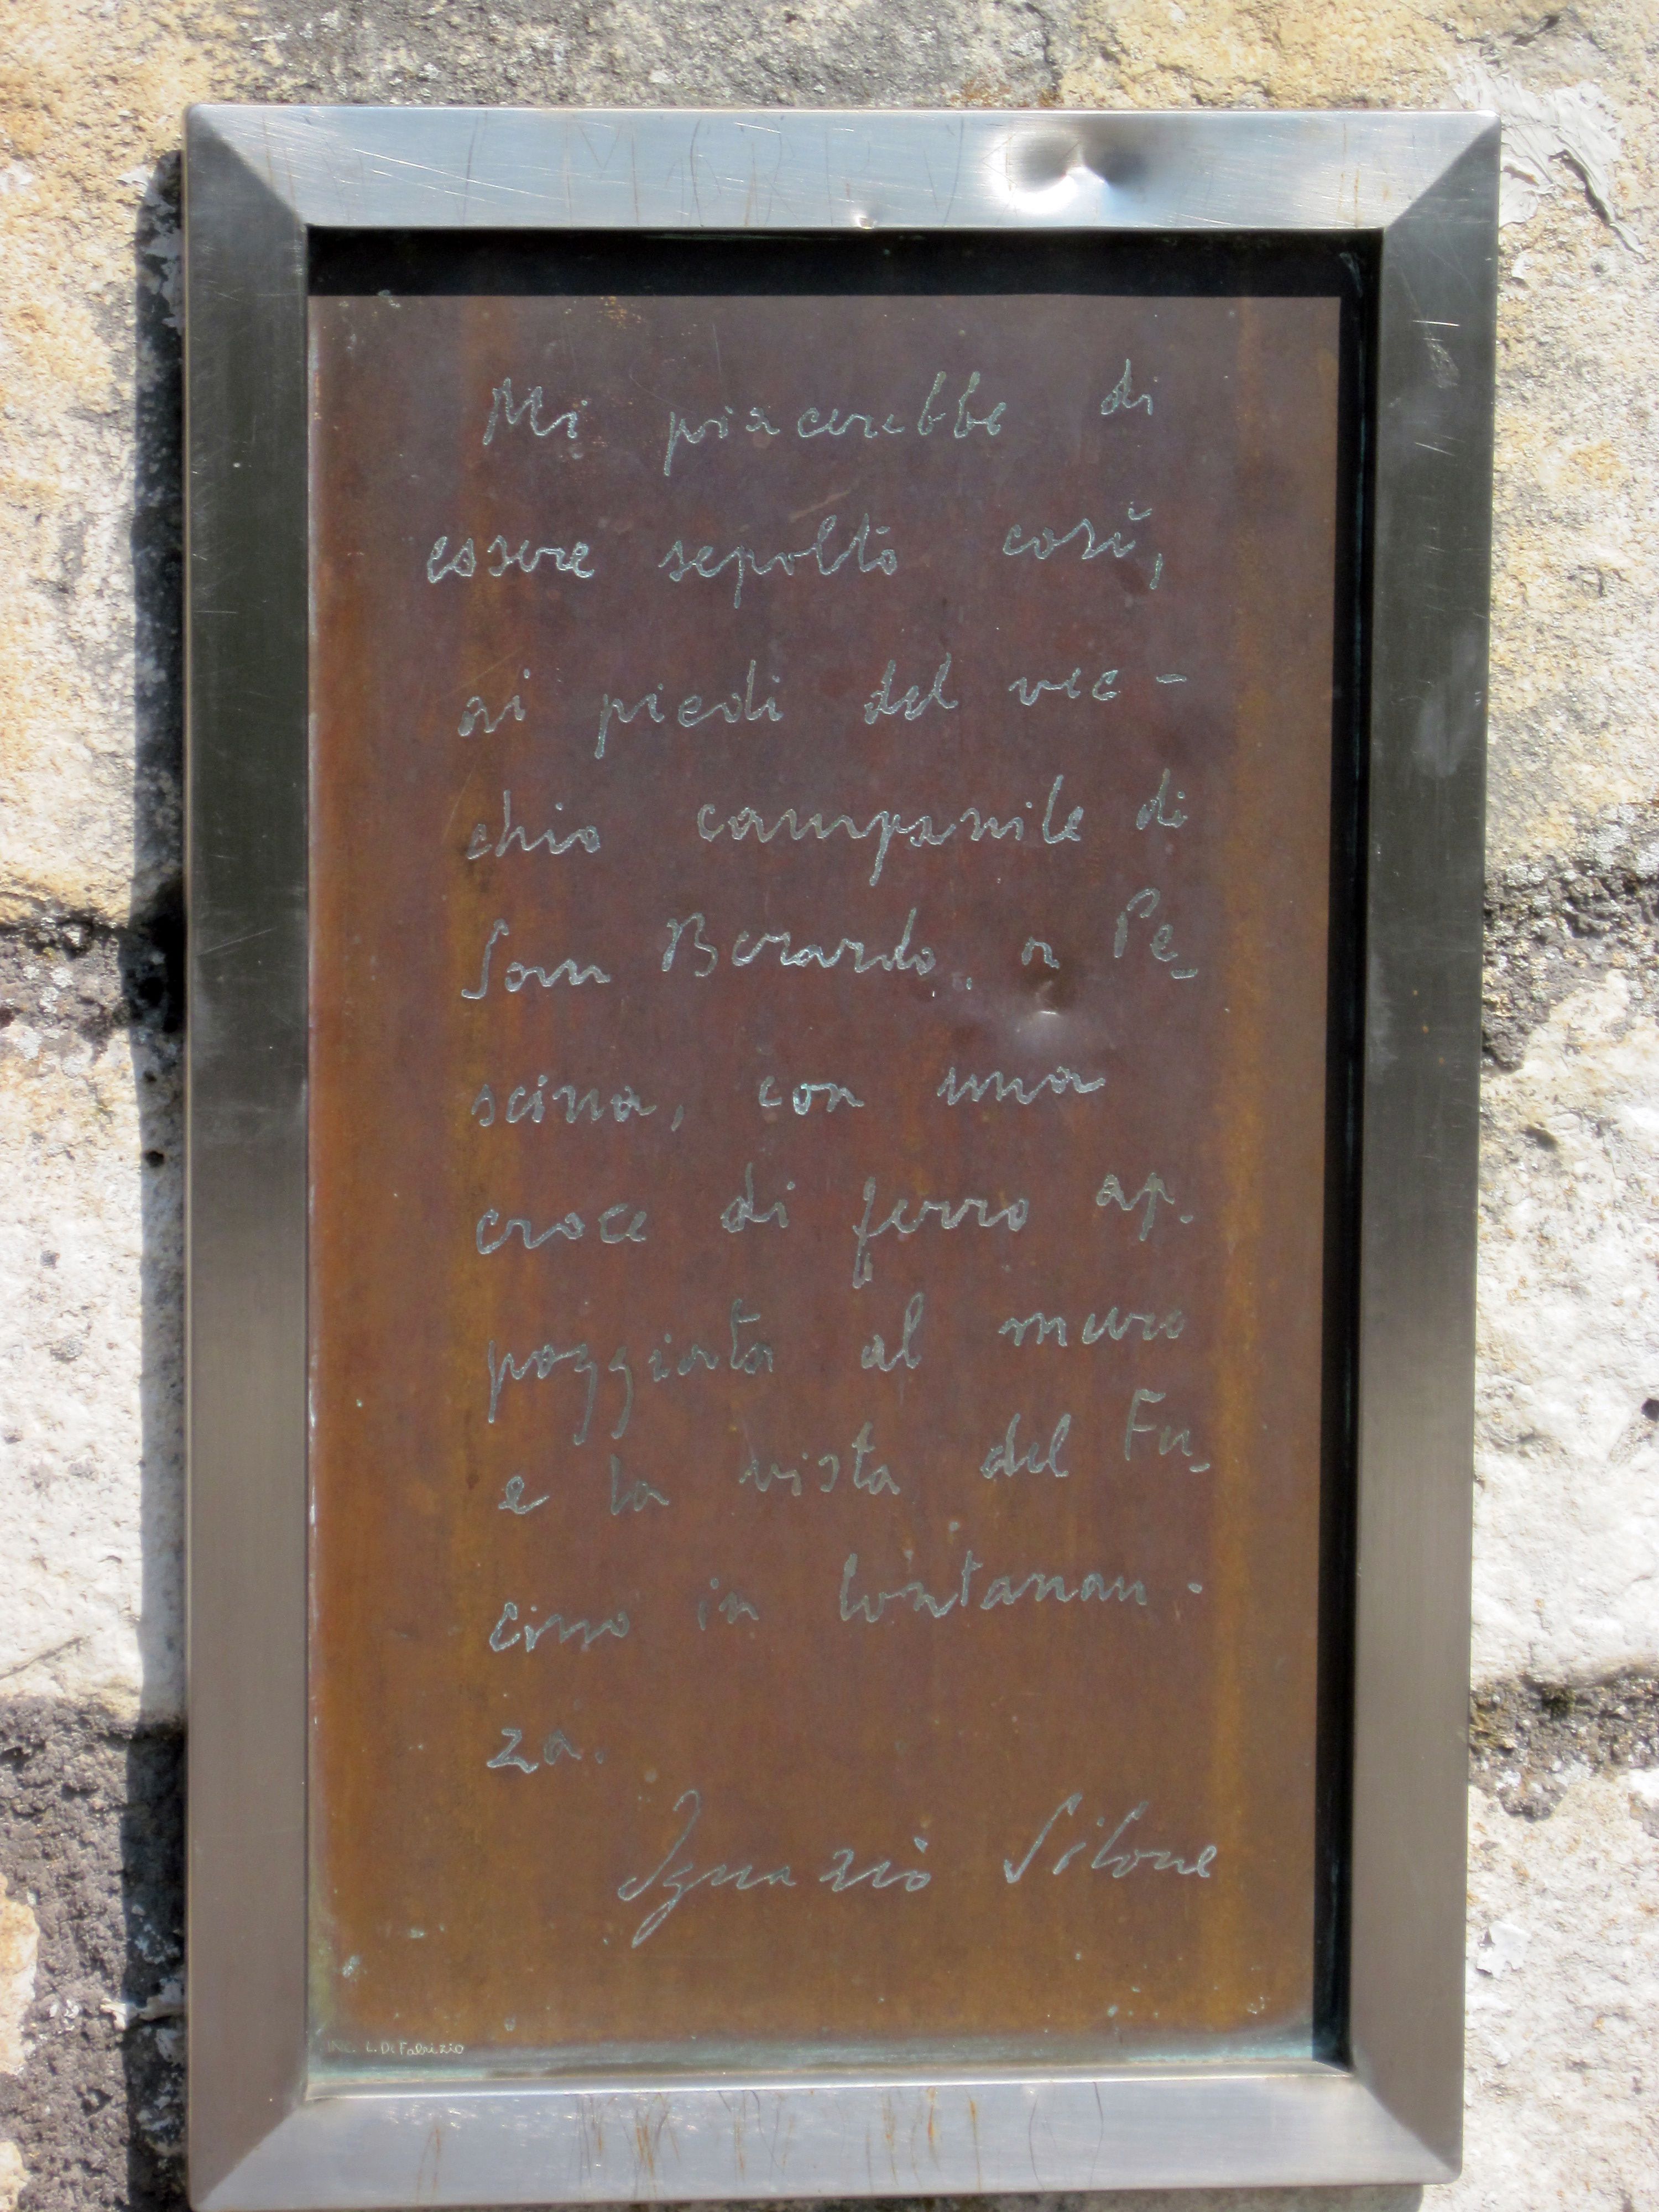 Mi piacerebbe di
essere sepolto così,
ai piedi del vec-
chio campanile di
San Berardo, a Pe-
scina, con una
croce di ferro ap-
poggiata al muro
e la vista del Fu-
cino in lontanan-
za.
Ignazio Silone
INC. L. Di Fabrizio